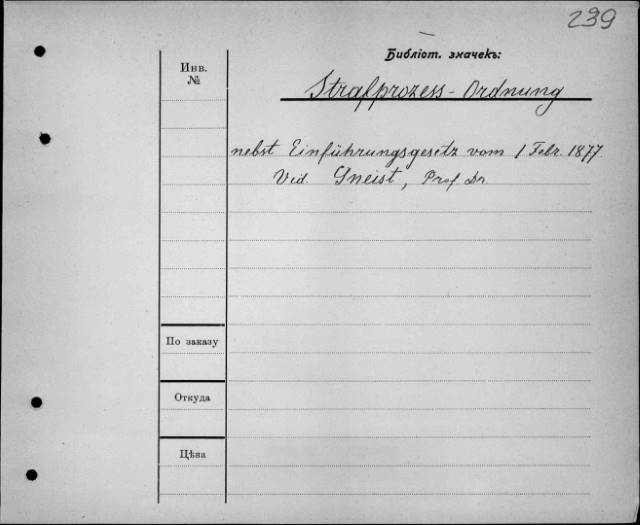 239
Библіот. значекъ:
Инв.
№
Strafprozess-Ordnung
nebst Einführungsgesetz vom 1 Febr. 1877
Vid. Gneist, Prof Dr.
По заказу
Откуда
Цѣна